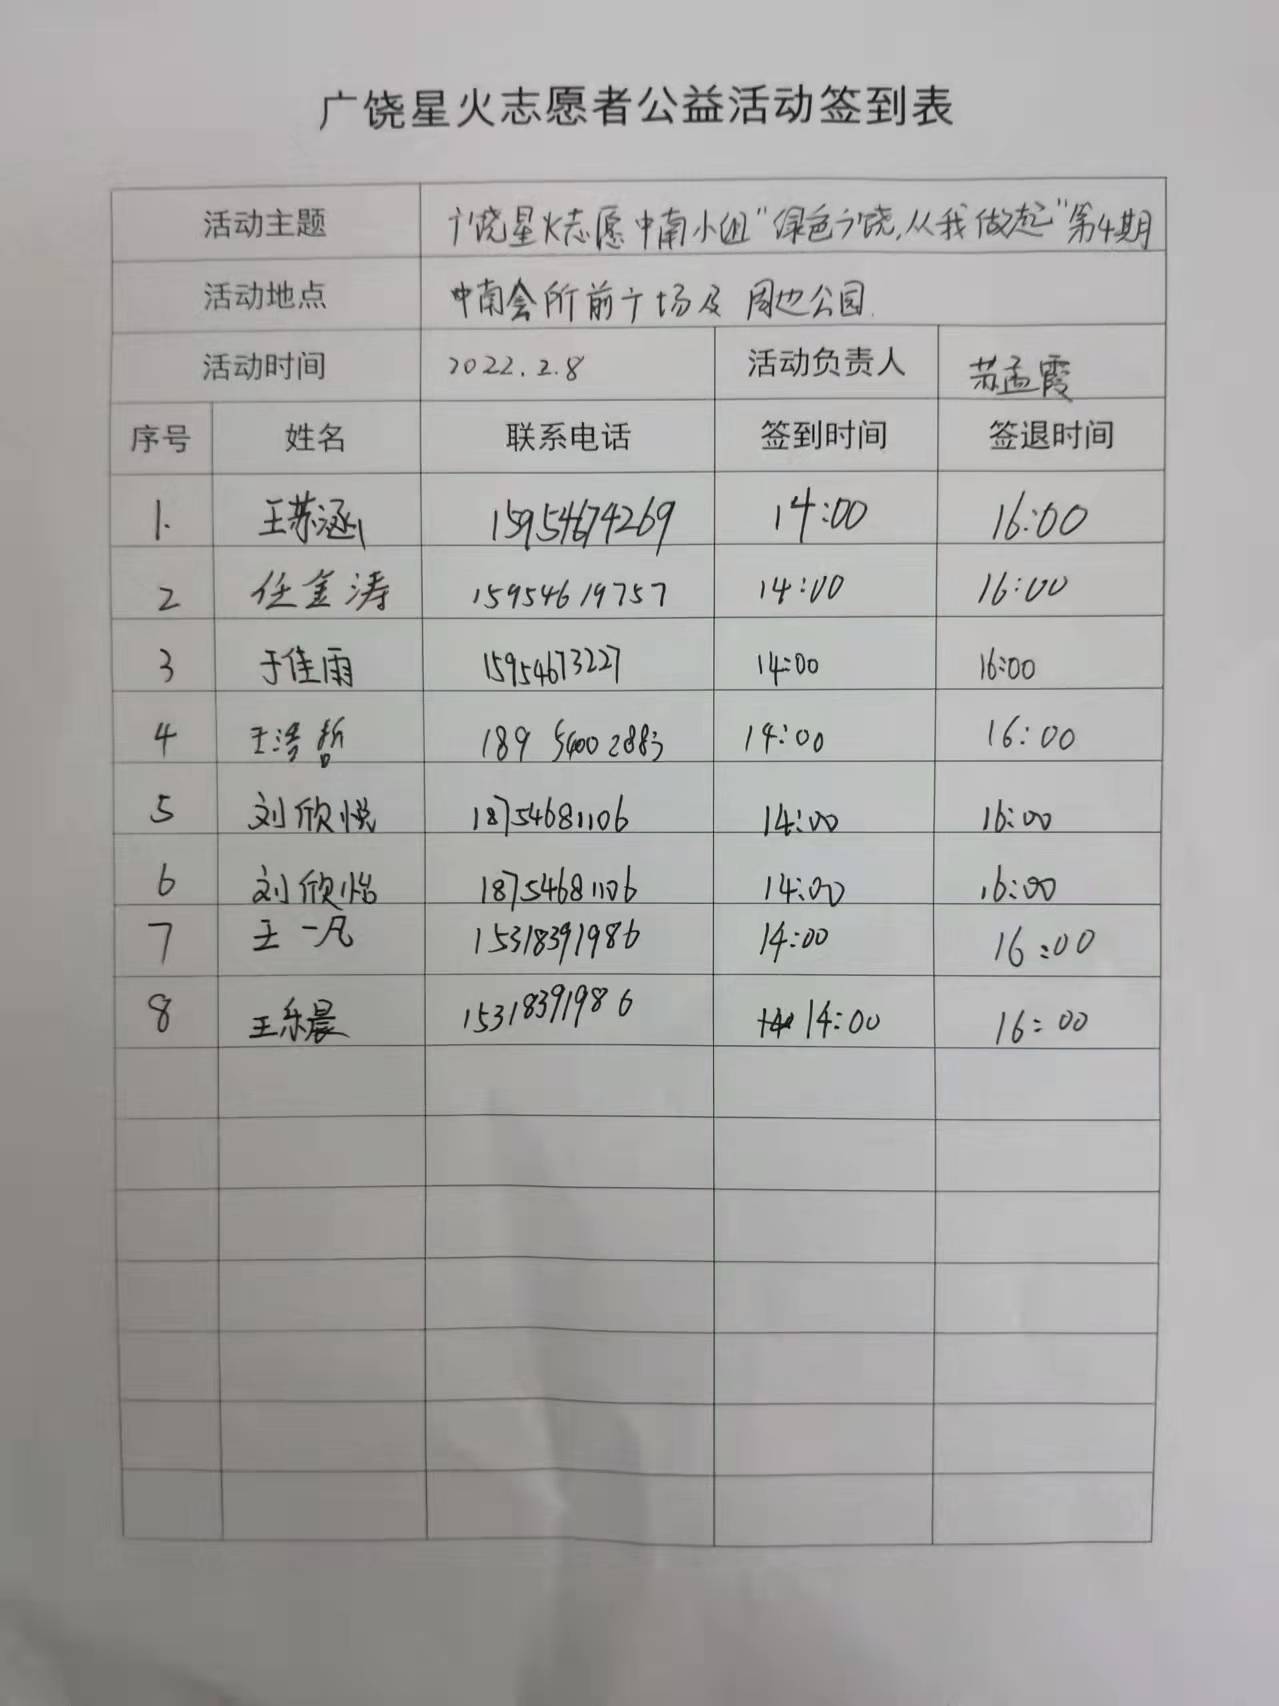 广饶星火志愿者公益活动签到表
活动主题 广饶星火志愿中南小组"绿色广饶,从我做起"第4期
活动地点 中南会所前广场及周边公园.
活动时间 2022.2.8 活动负责人 苏孟霞
序号 姓名 联系电话 签到时间 签退时间
1. 王苏涵 15954674269 14:00 16:00
2 任金涛 15954619757 14:00 16:00
3 于佳雨 15954673227 14:00 16:00
4 王浩哲 189 5400 2883 14:00 16:00
5 刘欣悦 18754681106 14:00 16:00
6 刘欣怡 18754681106 14:00 16:00
7 王一凡 15318391986 14:00 16:00
8 王乐晨 15318391986 14:00 16:00